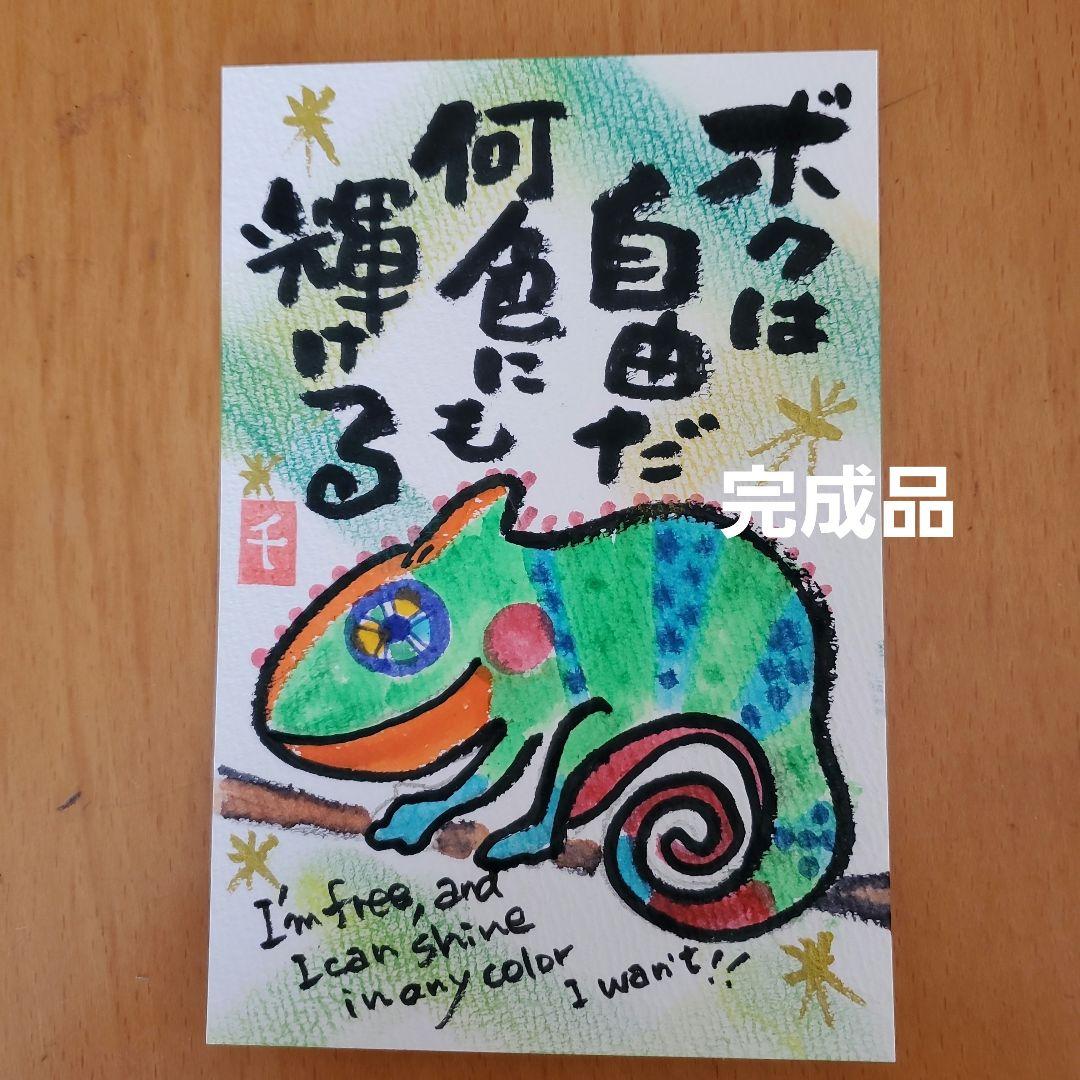 ボクは
自由だ
何色にも
輝ける
千
完成品
I'm free, and
I can shine
in any color
I wan't!!